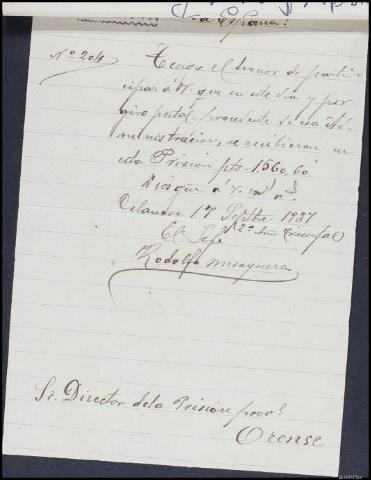 a España!
Nº 204
Tengo el honor de parti-
cipar á V. que en este dia y por
giro postal, procedente de esa Ad-
ministración, se recibieron en
esta Prision pts 1,560,60
Dios gue. á V. ms as.
Celanova 17 Septbre 1937
2º Año Triunfal
El Jefe
Rodolfo Mosquera
Sr. Director de la Prision provl
Orense